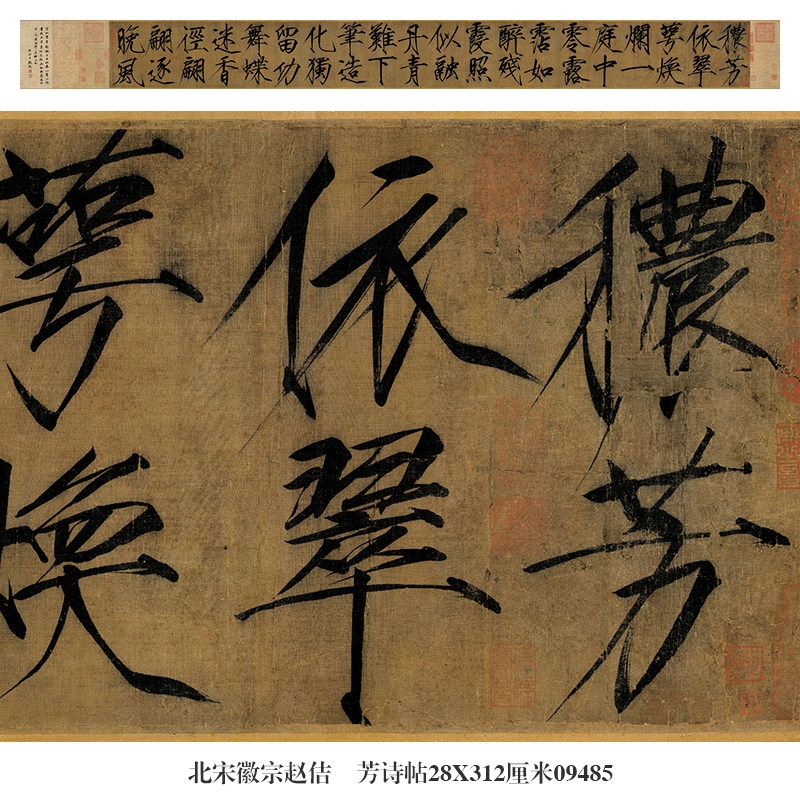 穠芳
依翠
萼煥
爛一
庭中
零露
霑如
醉殘
霞照
似融
丹青
難下
筆造
化獨
留功
舞蝶
迷香
徑翩
翩逐
晚風
穠芳
依翠
萼煥
北宋徽宗赵佶　芳诗帖28X312厘米09485